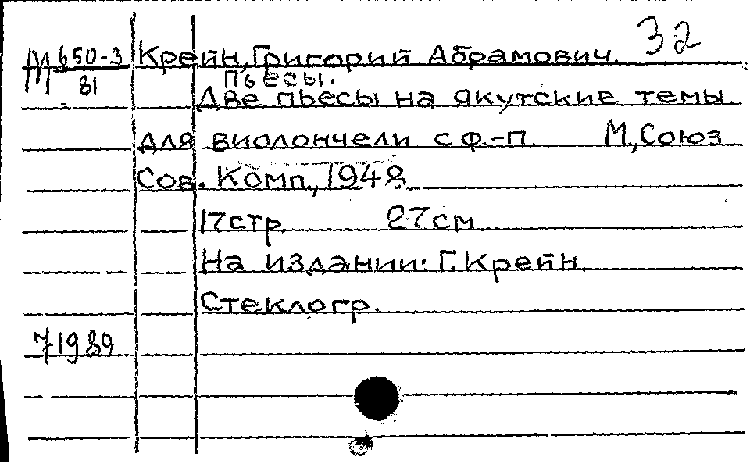 32
М 650-3 Крейн, Григорий Абрамович.
81 Пьесы.
Две пьесы на якутские темы
для виолончели с ф.-п. М, Союз
Сов. Комп., 1948
17стр. 27см
На издании: Г. Крейн.
Стеклогр.
71989